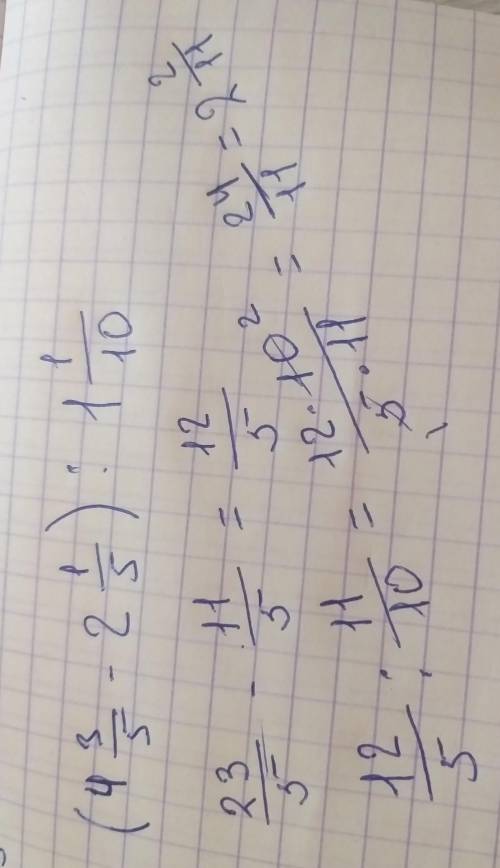 (4 3/5 - 2 1/5) : 1 1/10
23/5 - 11/5 = 12/5
12/5 : 11/10 = 12·10 2/5·11 = 24/11 = 2 2/11